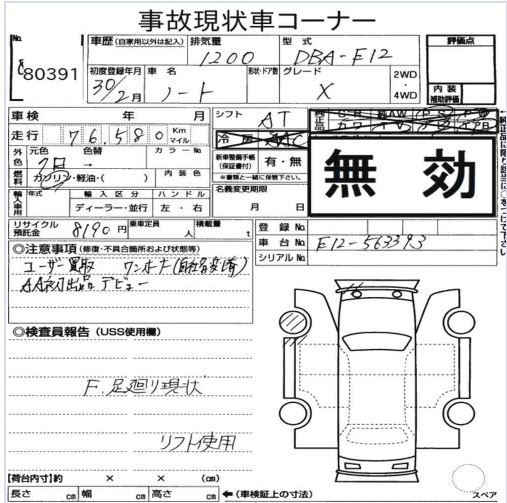 事故現状車コーナー
No. 80391
車歴 (自家用以外は記入) 排気量 1200 型式 DBA-E12
評価点
初度登録年月 30年2月 車名 ノート 形状・ドア数 グレード X 2WD・4WD
内装補助評価
車検 年 月 シフト AT
走行 76,580 Km マイル
外色 元色 色替 カラーNo.
新車整備手帳(保証書付) 有・無
※書類と一緒に保管下さい。
無効
燃料 ガソリン・軽油・( ) 内装色
名義変更期限 月 日
輸入車用 年式 輸入区分 ディーラー・並行 ハンドル 左・右
リサイクル預託金 8190円 乗車定員 人 積載量 t
登録No.
車台No. E12-563393
シリアルNo.
◎注意事項 (修復・不具合箇所および状態等)
ユーザー買取 ワンオーナー
AA初出品 デビュー
◎検査員報告 (USS使用欄)
F.足廻り現状
リフト使用
【荷台内寸】約 × × (cm)
長さ cm 幅 cm 高さ cm ←(車検証上の寸法)
スペア